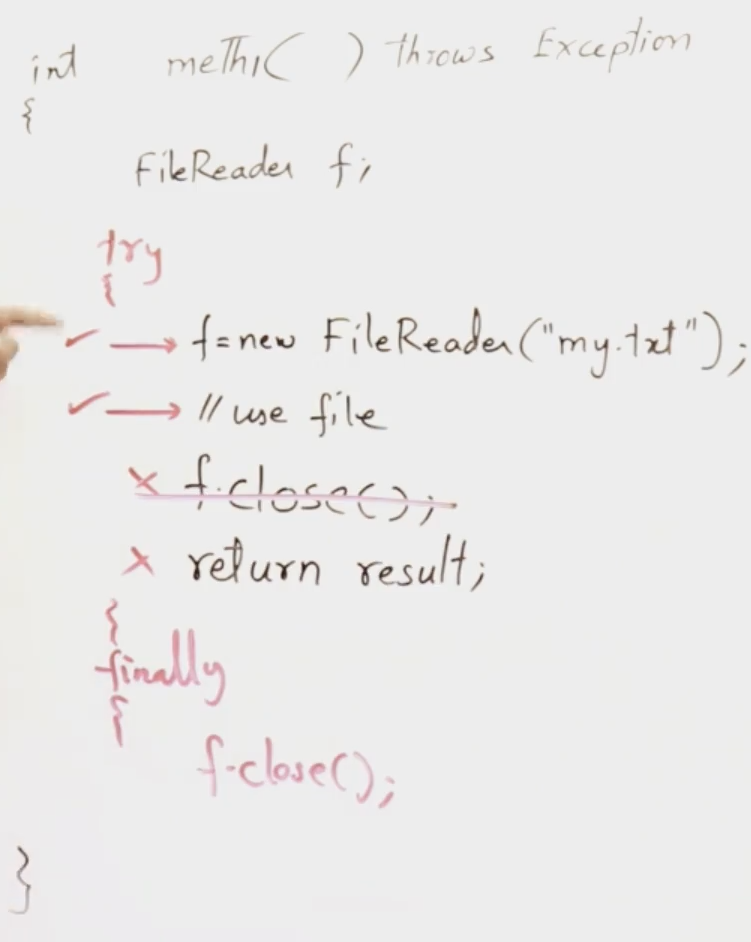 int meth1( ) throws Exception
{
FileReader f;
try
{
✓ → f=new FileReader("my.txt");
✓ → // use file
× f.close();
× return result;
{
finally
{
f.close();
}